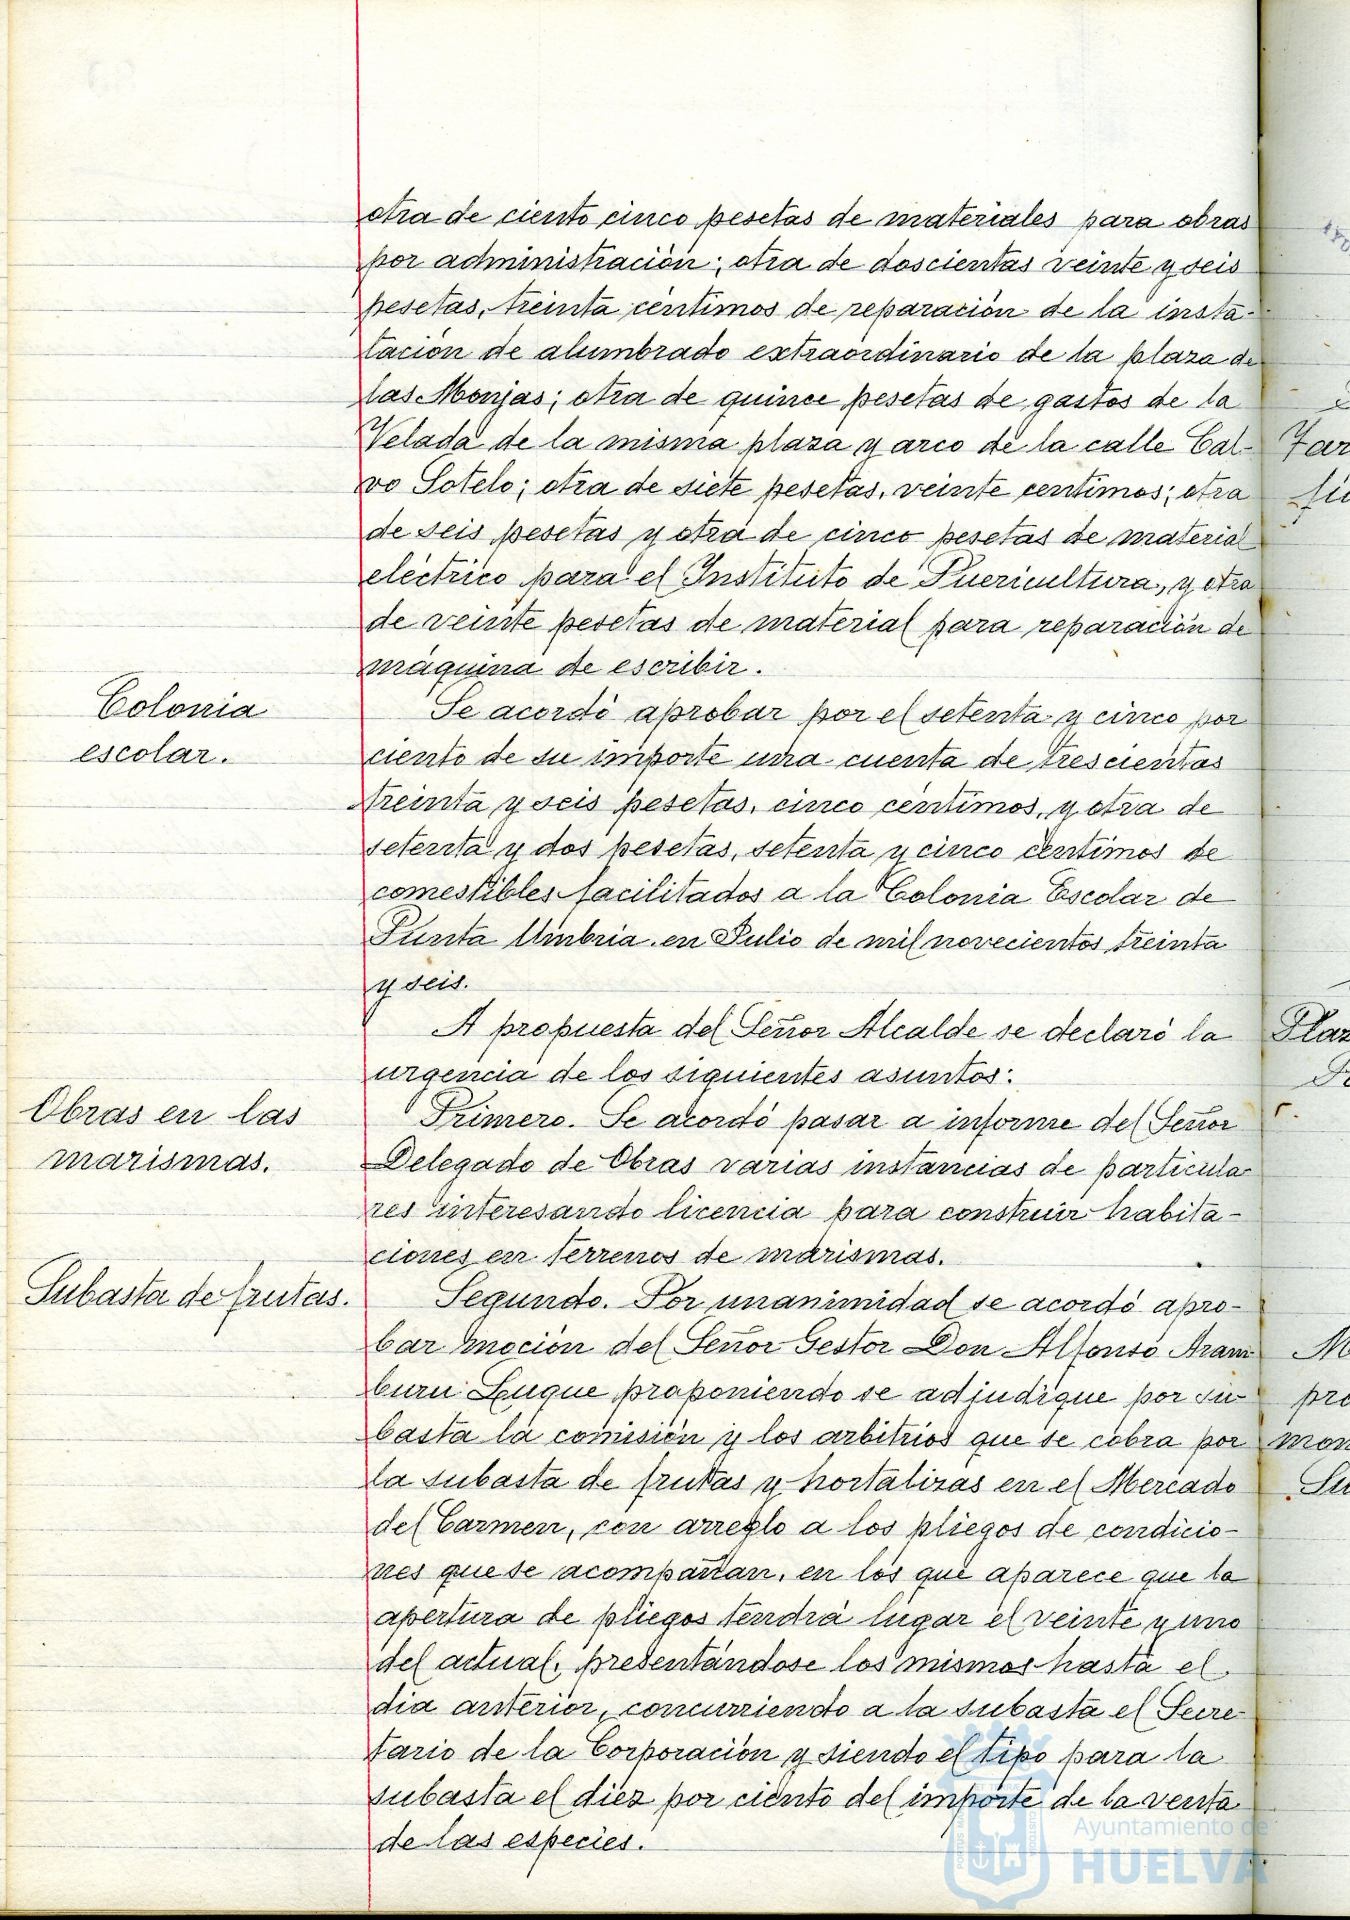 otra de ciento cinco pesetas de materiales para obras
por administración; otra de doscientas veinte y seis
pesetas, treinta céntimos de reparación de la insta-
lación de alumbrado extraordinario de la plaza de
las Monjas; otra de quince pesetas de gastos de la
Velada de la misma plaza y arco de la calle Cal-
vo Sotelo; otra de siete pesetas, veinte centimos; otra
de seis pesetas y otra de cinco pesetas de material
eléctrico para el Instituto de Puericultura, y otra
de veinte pesetas de material para reparación de
máquina de escribir.
Colonia
escolar.
Se acordó aprobar por el setenta y cinco por
ciento de su importe una cuenta de trescientas
treinta y seis pesetas, cinco céntimos, y otra de
setenta y dos pesetas, setenta y cinco céntimos de
comestibles facilitados a la Colonia Escolar de
Punta Umbria en Julio de mil novecientos treinta
y seis.
A propuesta del Señor Alcalde se declaró la
urgencia de los siguientes asuntos:
Obras en las
marismas.
Primero. Se acordó pasar a informe del Señor
Delegado de Obras varias instancias de particula
res interesando licencia para construir habita-
ciones en terrenos de marismas.
Subasta de frutas.
Segundo. Por unanimidad se acordó apro-
bar moción del Señor Gestor Don Alfonso Aram
buru Luque proponiendo se adjudique por su-
basta la comisión y los arbitrios que se cobra por
la subasta de frutas y hortalizas en el Mercado
del Carmen, con arreglo a los pliegos de condicio-
nes que se acompañan, en los que aparece que la
apertura de pliegos tendrá lugar el veinte y uno
del actual, presentándose los mismos hasta el
dia anterior, concurriendo a la subasta el Secre-
tario de la Corporación y siendo el tipo para la
subasta el diez por ciento del importe de la venta
de las especies.
Ayuntamiento de
HUELVA